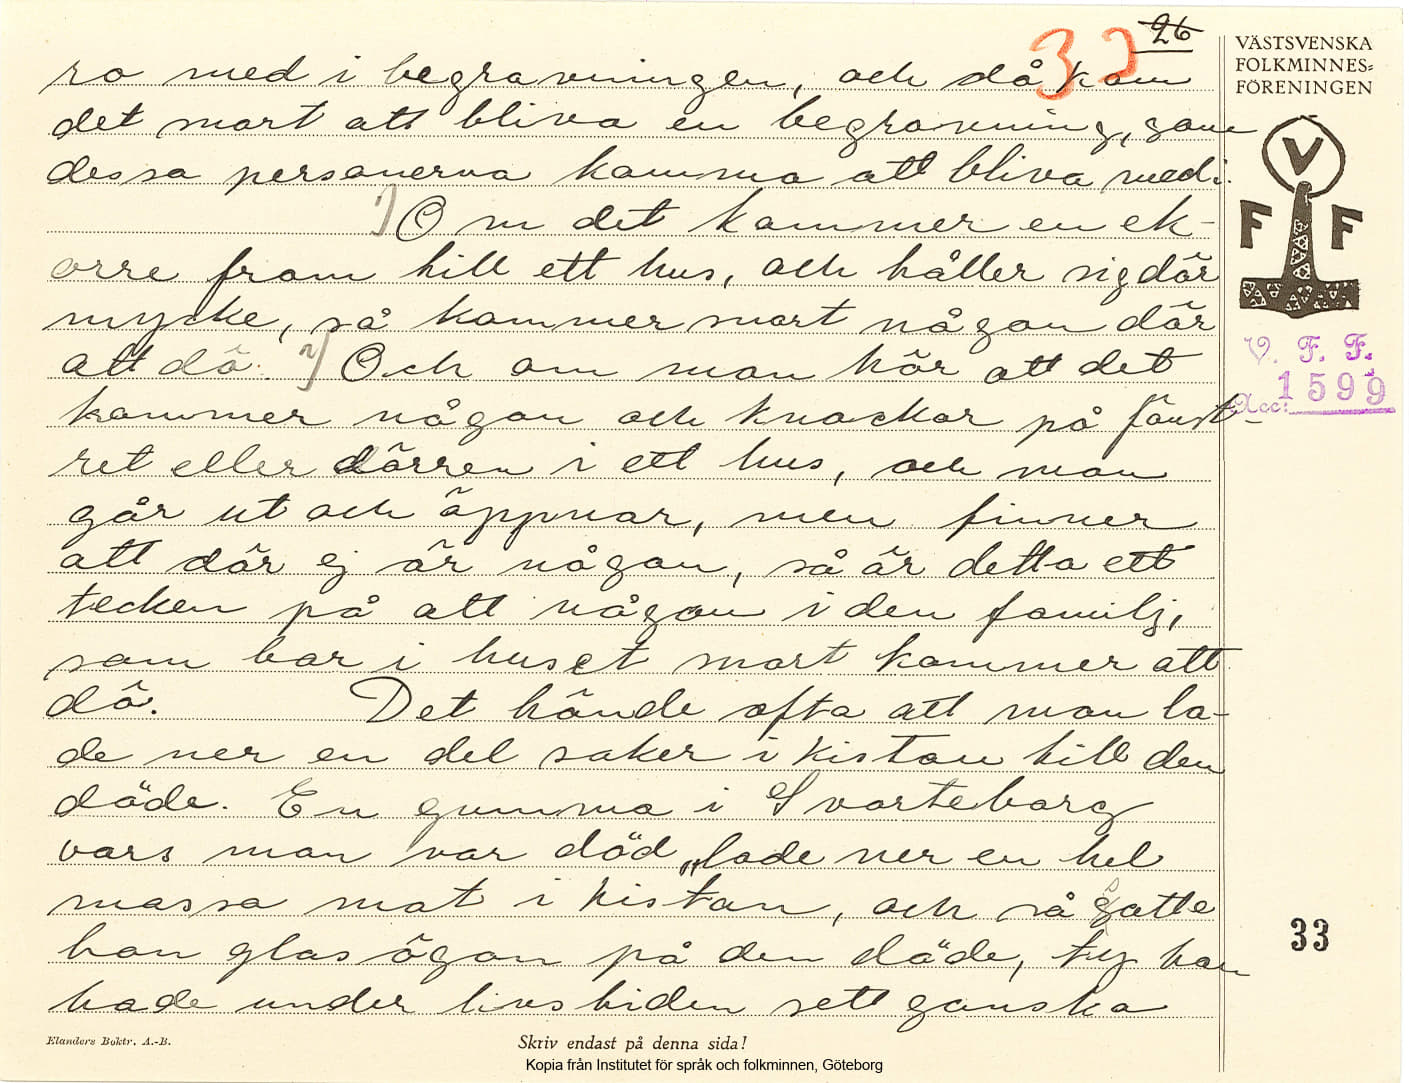 26
33
VÄSTSVENSKA
FOLKMINNES=
FÖRENINGEN
ra med i begravningen, och då kom
det snart att bliva en begravning, som
dessa personerna komma att bliva med i.
1) Om det kommer en ek-
orre fram till ett hus, och håller sig där
mycke, så kommer snart någon där
att dö. 2) Och om man hör att det
kommer någon och knackar på fönst-
ret eller dörren i ett hus, och man
går ut och öppnar, men finner
att där ej är någon, så är detta ett
tecken på att någon i den familj,
som bor i huset snart kommer att
dö. Det hände ofta att man la-
de ner en del saker i kistan till den
döde. En gumma i Svarteborg
vars man var död, lade ner en hel
massa mat i kistan, och så satte
hon glasögon på den döde, ty han
hade under livstiden sett ganska
V
F F
V. F. F.
Acc: 1599
33
Elanders Boktr. A.-B.
Skriv endast på denna sida!
Kopia från Institutet för språk och folkminnen, Göteborg